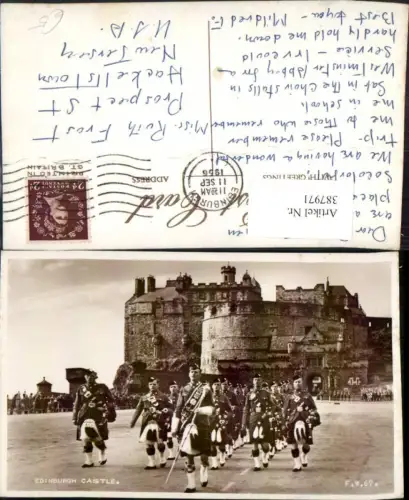 Dear
are a
place
Sasolo
We are having a wonderful
trip. Please remember
me to those who remember
me in school.
Sat in the Choir stalls in
Westminster Abbey for a
Service - I could
hardly hold me down.
Best to you - Mildred E.
WITH GREETINGS
Post Card
ADDRESS
Artikel Nr.
387971
EDINBURGH
11 30 AM
11 SEP
1956
POSTAGE
REVENUE
2D
PRINTED IN
GT. BRITAIN
Miss. Ruth Frost
Prospect St
Hackettstown
New Jersey
U.S.A.
EDINBURGH CASTLE.